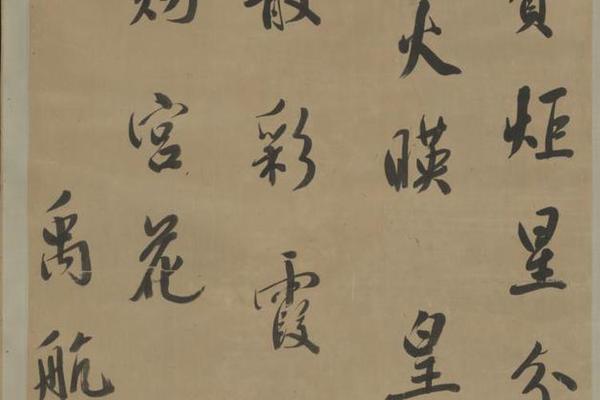 炬星分
火暎皇
散彩霞
賜宮花
禹航